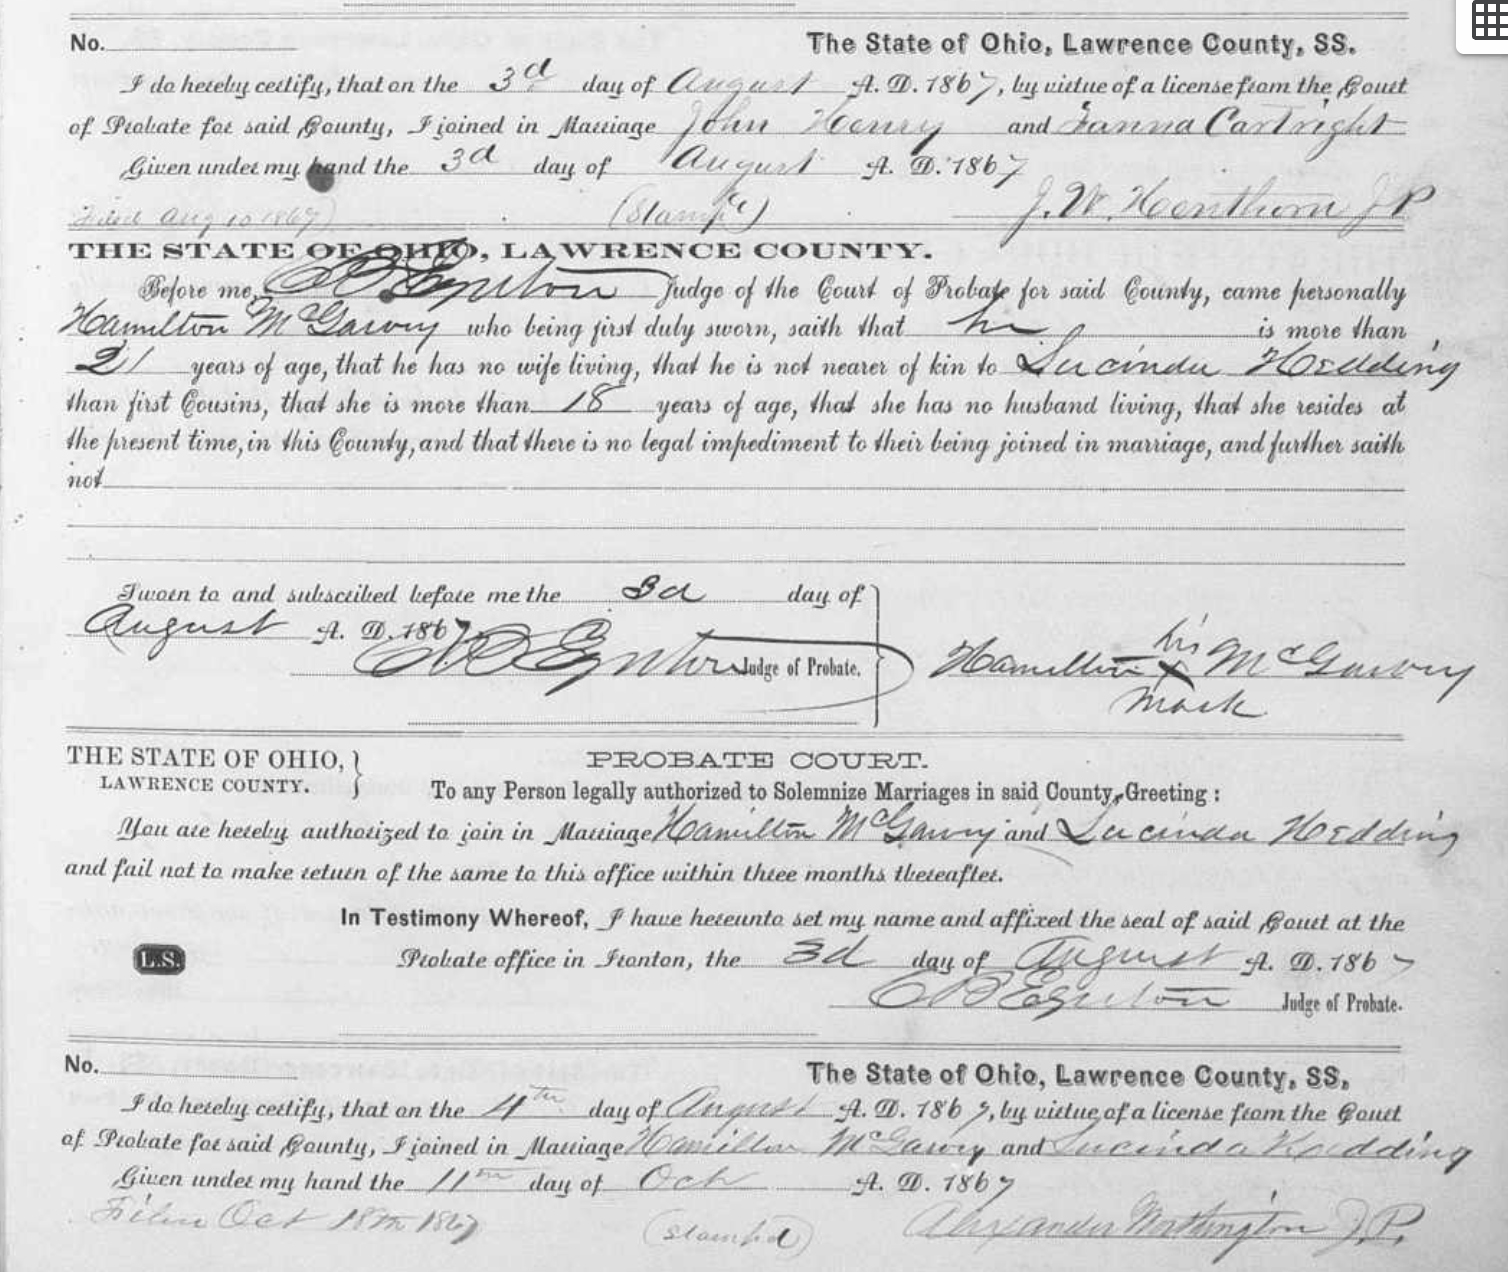 No. The State of Ohio, Lawrence County, SS.
I do hereby certify, that on the 3d day of August A. D. 1867, by virtue of a license from the Court
of Probate for said County, I joined in Marriage John Henry and Fanna Cartright
Given under my hand the 3d day of August A. D. 1867
Filed Aug 10 1867) (Stamp'd) J. W. Henthorn J P
THE STATE OF OHIO, LAWRENCE COUNTY.
Before me, C B Egerton Judge of the Court of Probate for said County, came personally
Hamilton McGarvy who being first duly sworn, saith that he is more than
21 years of age, that he has no wife living, that he is not nearer of kin to Lucinda Hedding
than first Cousins, that she is more than 18 years of age, that she has no husband living, that she resides at
the present time, in this County, and that there is no legal impediment to their being joined in marriage, and further saith
not
Sworn to and subscribed before me the 3d day of
August A. D. 1867
C B Egerton Judge of Probate.
his
Hamilton X McGarvy
mark
THE STATE OF OHIO, PROBATE COURT.
LAWRENCE COUNTY. To any Person legally authorized to Solemnize Marriages in said County, Greeting:
You are hereby authorized to join in Marriage Hamilton McGarvy and Lucinda Hedding
and fail not to make return of the same to this office within three months thereafter.
In Testimony Whereof, I have hereunto set my name and affixed the seal of said Court at the
L.S. Probate office in Ironton, the 3d day of August A. D. 1867
C B Egerton Judge of Probate.
No. The State of Ohio, Lawrence County, SS,
I do hereby certify, that on the 4th day of August A. D. 1867, by virtue of a license from the Court
of Probate for said County, I joined in Marriage Hamilton McGarvy and Lucinda Hedding
Given under my hand the 11th day of Oct A. D. 1867
Filed Oct 18th 1867 (Stamp'd) Alexander Worthington J. P.